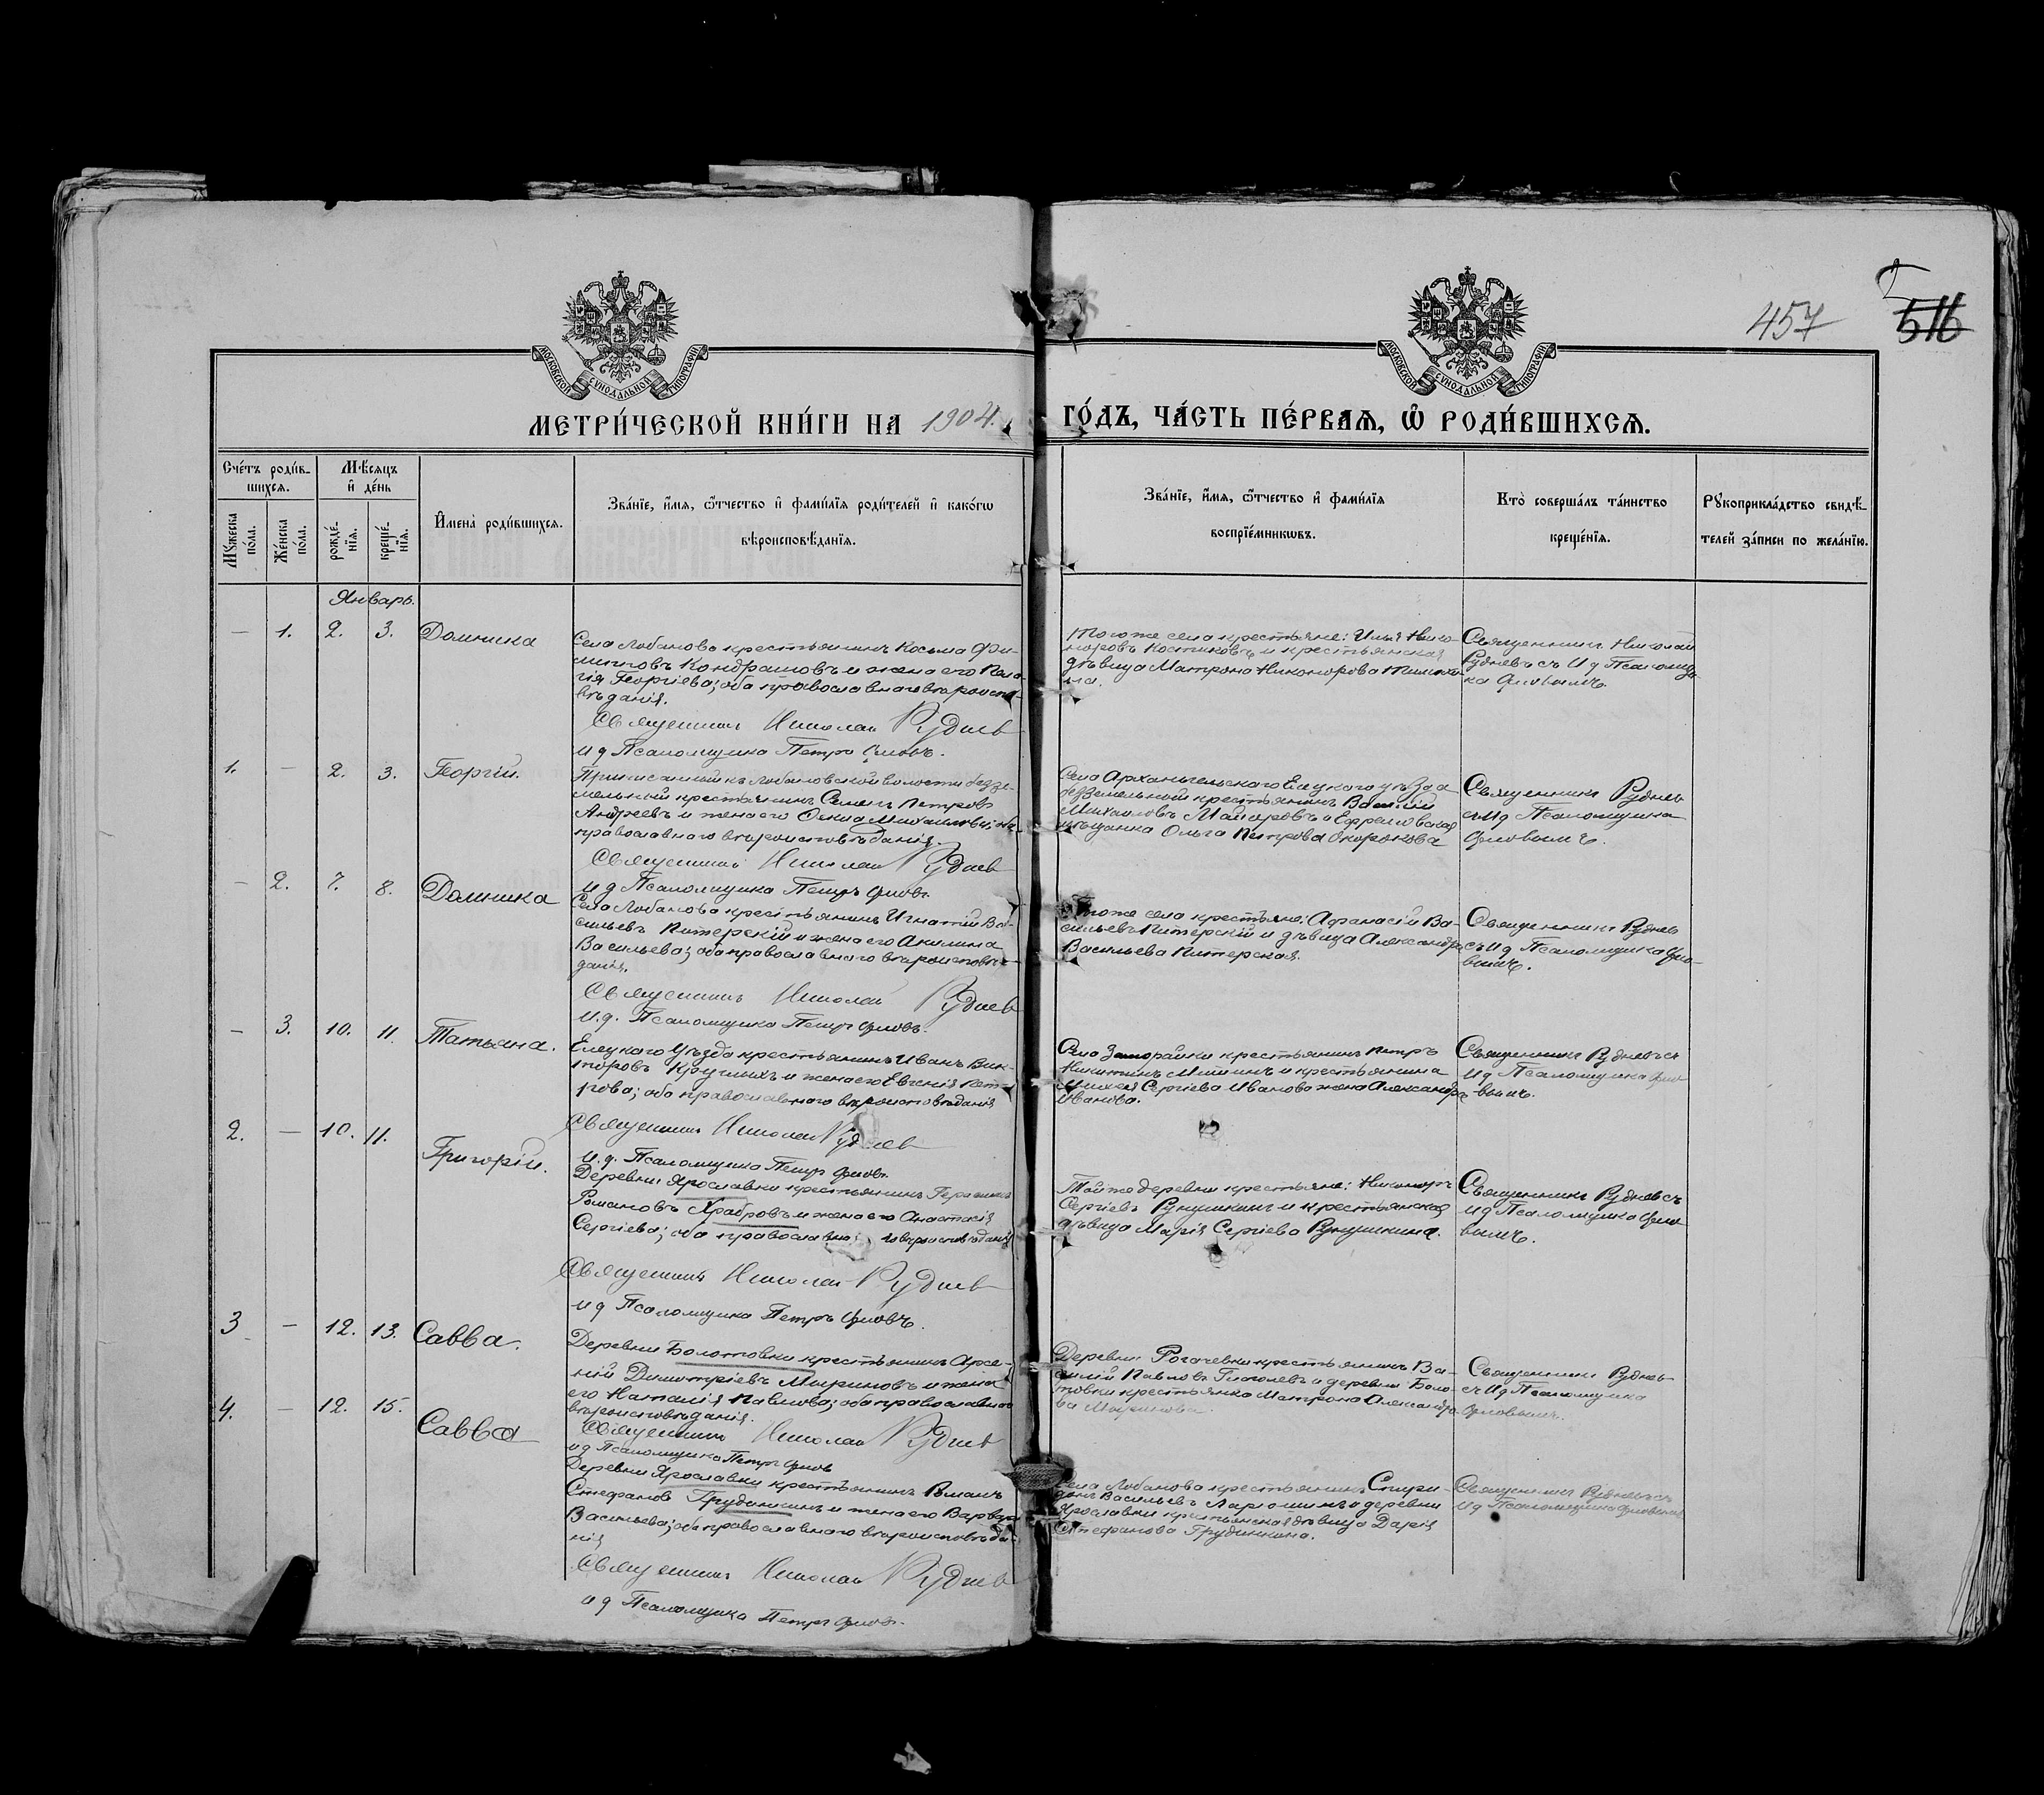 457
516
2
МОСКОВСКОЙ СѴНОДАЛЬНОЙ ТИПОГРАФІИ
МОСКОВСКОЙ СѴНОДАЛЬНОЙ ТИПОГРАФІИ
МЕТРИ́ЧЕСКОЙ КНИ́ГИ НА 1904.
ГО́ДЪ, ЧА́СТЬ ПЕ́РВАЯ, Ѡ҆ РОДИ́ВШИХСѦ.
Сче́тъ роди́в-
шихсѧ.
Мѣ́сѧцъ
и҆ де́нь
Мꙋ́жеска
по́ла.
Же́нска
по́ла.
рожде́-
нїѧ.
креще́-
нїѧ.
И҆мена̀ роди́вшихсѧ.
Зва́нїе, и҆́мѧ, ѻ҆́тчество и҆ фами́лїѧ роди́телей и҆ како́гѡ
вѣроисповѣ́данїѧ.
Зва́нїе, и҆́мѧ, ѻ҆́тчество и҆ фами́лїѧ
воспрїе́мникѡвъ.
Кто̀ соверша́лъ та́инство
креще́нїѧ.
Рꙋкоприкла́дство свидѣ́-
телей за́писи по жела́нїю.
Январь.
— 1. 2. 3. Домника
Села Лобанова крестьянинъ Косьма Фи-
липповъ Кондрашовъ и жена его Пела-
гія Георгіева; оба православнаго вѣроиспо-
вѣданія.
Священникъ Николай Руднев
И д Псаломщика Петръ Орловъ.
Того же села крестьяне: Илья Нико-
норовъ Костиковъ и крестьянская
дѣвица Матрона Никонорова
Священникъ Николай
Рудневъ съ И д Псаломщи-
ка Орловымъ.
1. — 2. 3. Георгій.
Приписанный къ Лобановской волости беззе-
мельный крестьянинъ Семенъ Петровъ
Андреевъ и жена его
православнаго вѣроисповѣданія.
Священникъ Николай Руднев
И д Псаломщика Петръ Орловъ.
Села Архангельскаго Елецкаго уѣзда
безземельный крестьянинъ Василій
Михаиловъ Майоровъ и Ефремовская
мѣщанка Ольга Петрова Окорокова
Священникъ Руднев
съ И д Псаломщика
Орловымъ.
— 2. 7. 8. Домника
Села Лобанова крестьянинъ Игнатій Ва-
сильевъ Питерскій и жена его Акилина
Васильева; оба православнаго вѣроисповѣ-
данія.
Священникъ Николай Руднев
И.д. Псаломщика Петръ Орловъ.
Того же села крестьяне: Афанасій Ва-
сильевъ Питерскій и дѣвица Александра
Васильева Питерская.
Священникъ Руднев
съ И д Псаломщика Орло-
вымъ.
— 3. 10. 11. Татьяна.
Елецкаго Уѣзда крестьянинъ Иванъ Вик-
торовъ Круглыхъ и жена его Евгенія Пет-
рова; оба православнаго вѣроисповѣданія
Священникъ Николай Руднев
И.д. Псаломщика Петръ Орловъ.
Села крестьянинъ Петръ
Никитинъ Митинъ и крестьянина
Сергіева Иванова жена Александра
Иванова.
Священникъ Рудневъ съ
И д Псаломщика Орло-
вымъ.
2. — 10. 11. Григорій.
Деревни Ярославки крестьянинъ Герасимъ
Романовъ Храбровъ и жена его Анастасія
Сергіева; оба православна вѣроисповѣданія
Священникъ Николай Руднев
И д Псаломщика Петръ Орловъ.
Той же деревни крестьяне: Никоноръ
Сергіевъ Рукушкинъ и крестьянская
дѣвица Марія Сергіева Рукушкина.
Священникъ Рудневъ съ
И д Псаломщика Орло-
вымъ.
3 — 12. 13. Савва.
Деревни Болотовки крестьянинъ Арсе-
ній Димитріевъ Мыриновъ и жена
его Наталія Павлова; оба православнаго
вѣроисповѣданія.
Священникъ Николай Руднев
И д Псаломщика Петръ Орлов
Деревни Рогачевки крестьянинъ Ва-
силій Павловъ Глаголевъ и деревни Боло-
товки крестьянка Матрона Александро-
ва Мыринова.
Священникъ Руднев
съ И д Псаломщика
Орловымъ.
4. — 12. 15. Савва
Деревни Ярославки крестьянинъ Романъ
Стефановъ Грудинкинъ и жена его Варвара
Васильева; оба православнаго вѣроисповѣда-
нія
Священникъ Николай Руднев
И д Псаломщика Петръ Орловъ.
Села Лобанова крестьянинъ Спири-
донъ Васильевъ Ларюшинъ и деревни
Ярославки крестьянская дѣвица Дарія
Стефанова Грудинкина.
Священникъ Рудневъ съ
И д Псаломщика Орловымъ